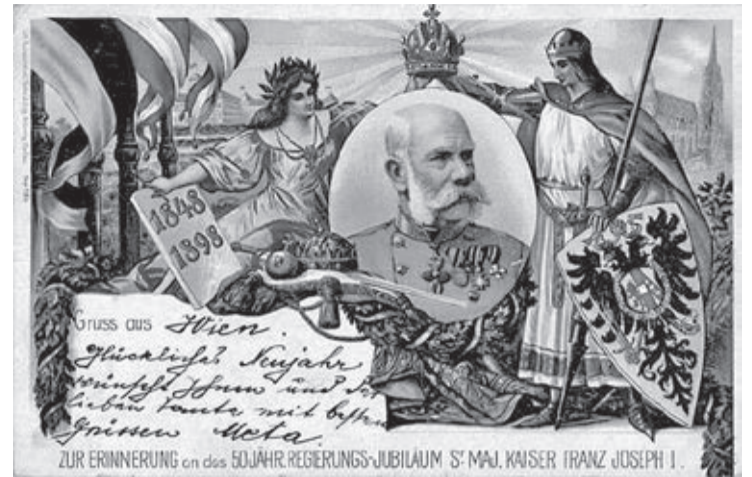 1848
1898
Gruss aus Wien.
Glückliches Neujahr
wünscht Ihnen und der
lieben Tante mit besten
Grüssen Meta.
ZUR ERINNERUNG an das 50JÄHR. REGIERUNGS-JUBILÄUM Sr. MAJ. KAISER FRANZ JOSEPH I.